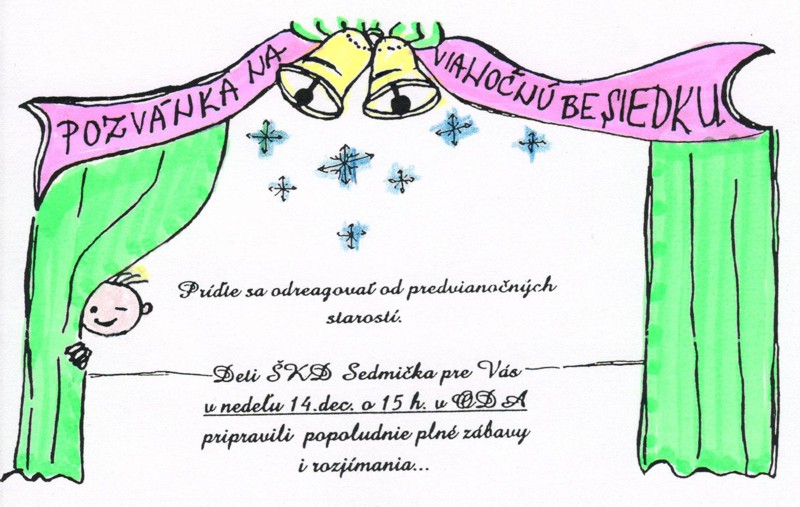 POZVÁNKA NA VIANOČNÚ BESIEDKU
Príďte sa odreagovať od predvianočných
starostí.
Deti ŠKD Sedmička pre Vás
v nedeľu 14.dec. o 15 h. v ODA
pripravili popoludnie plné zábavy
i rozjímania...